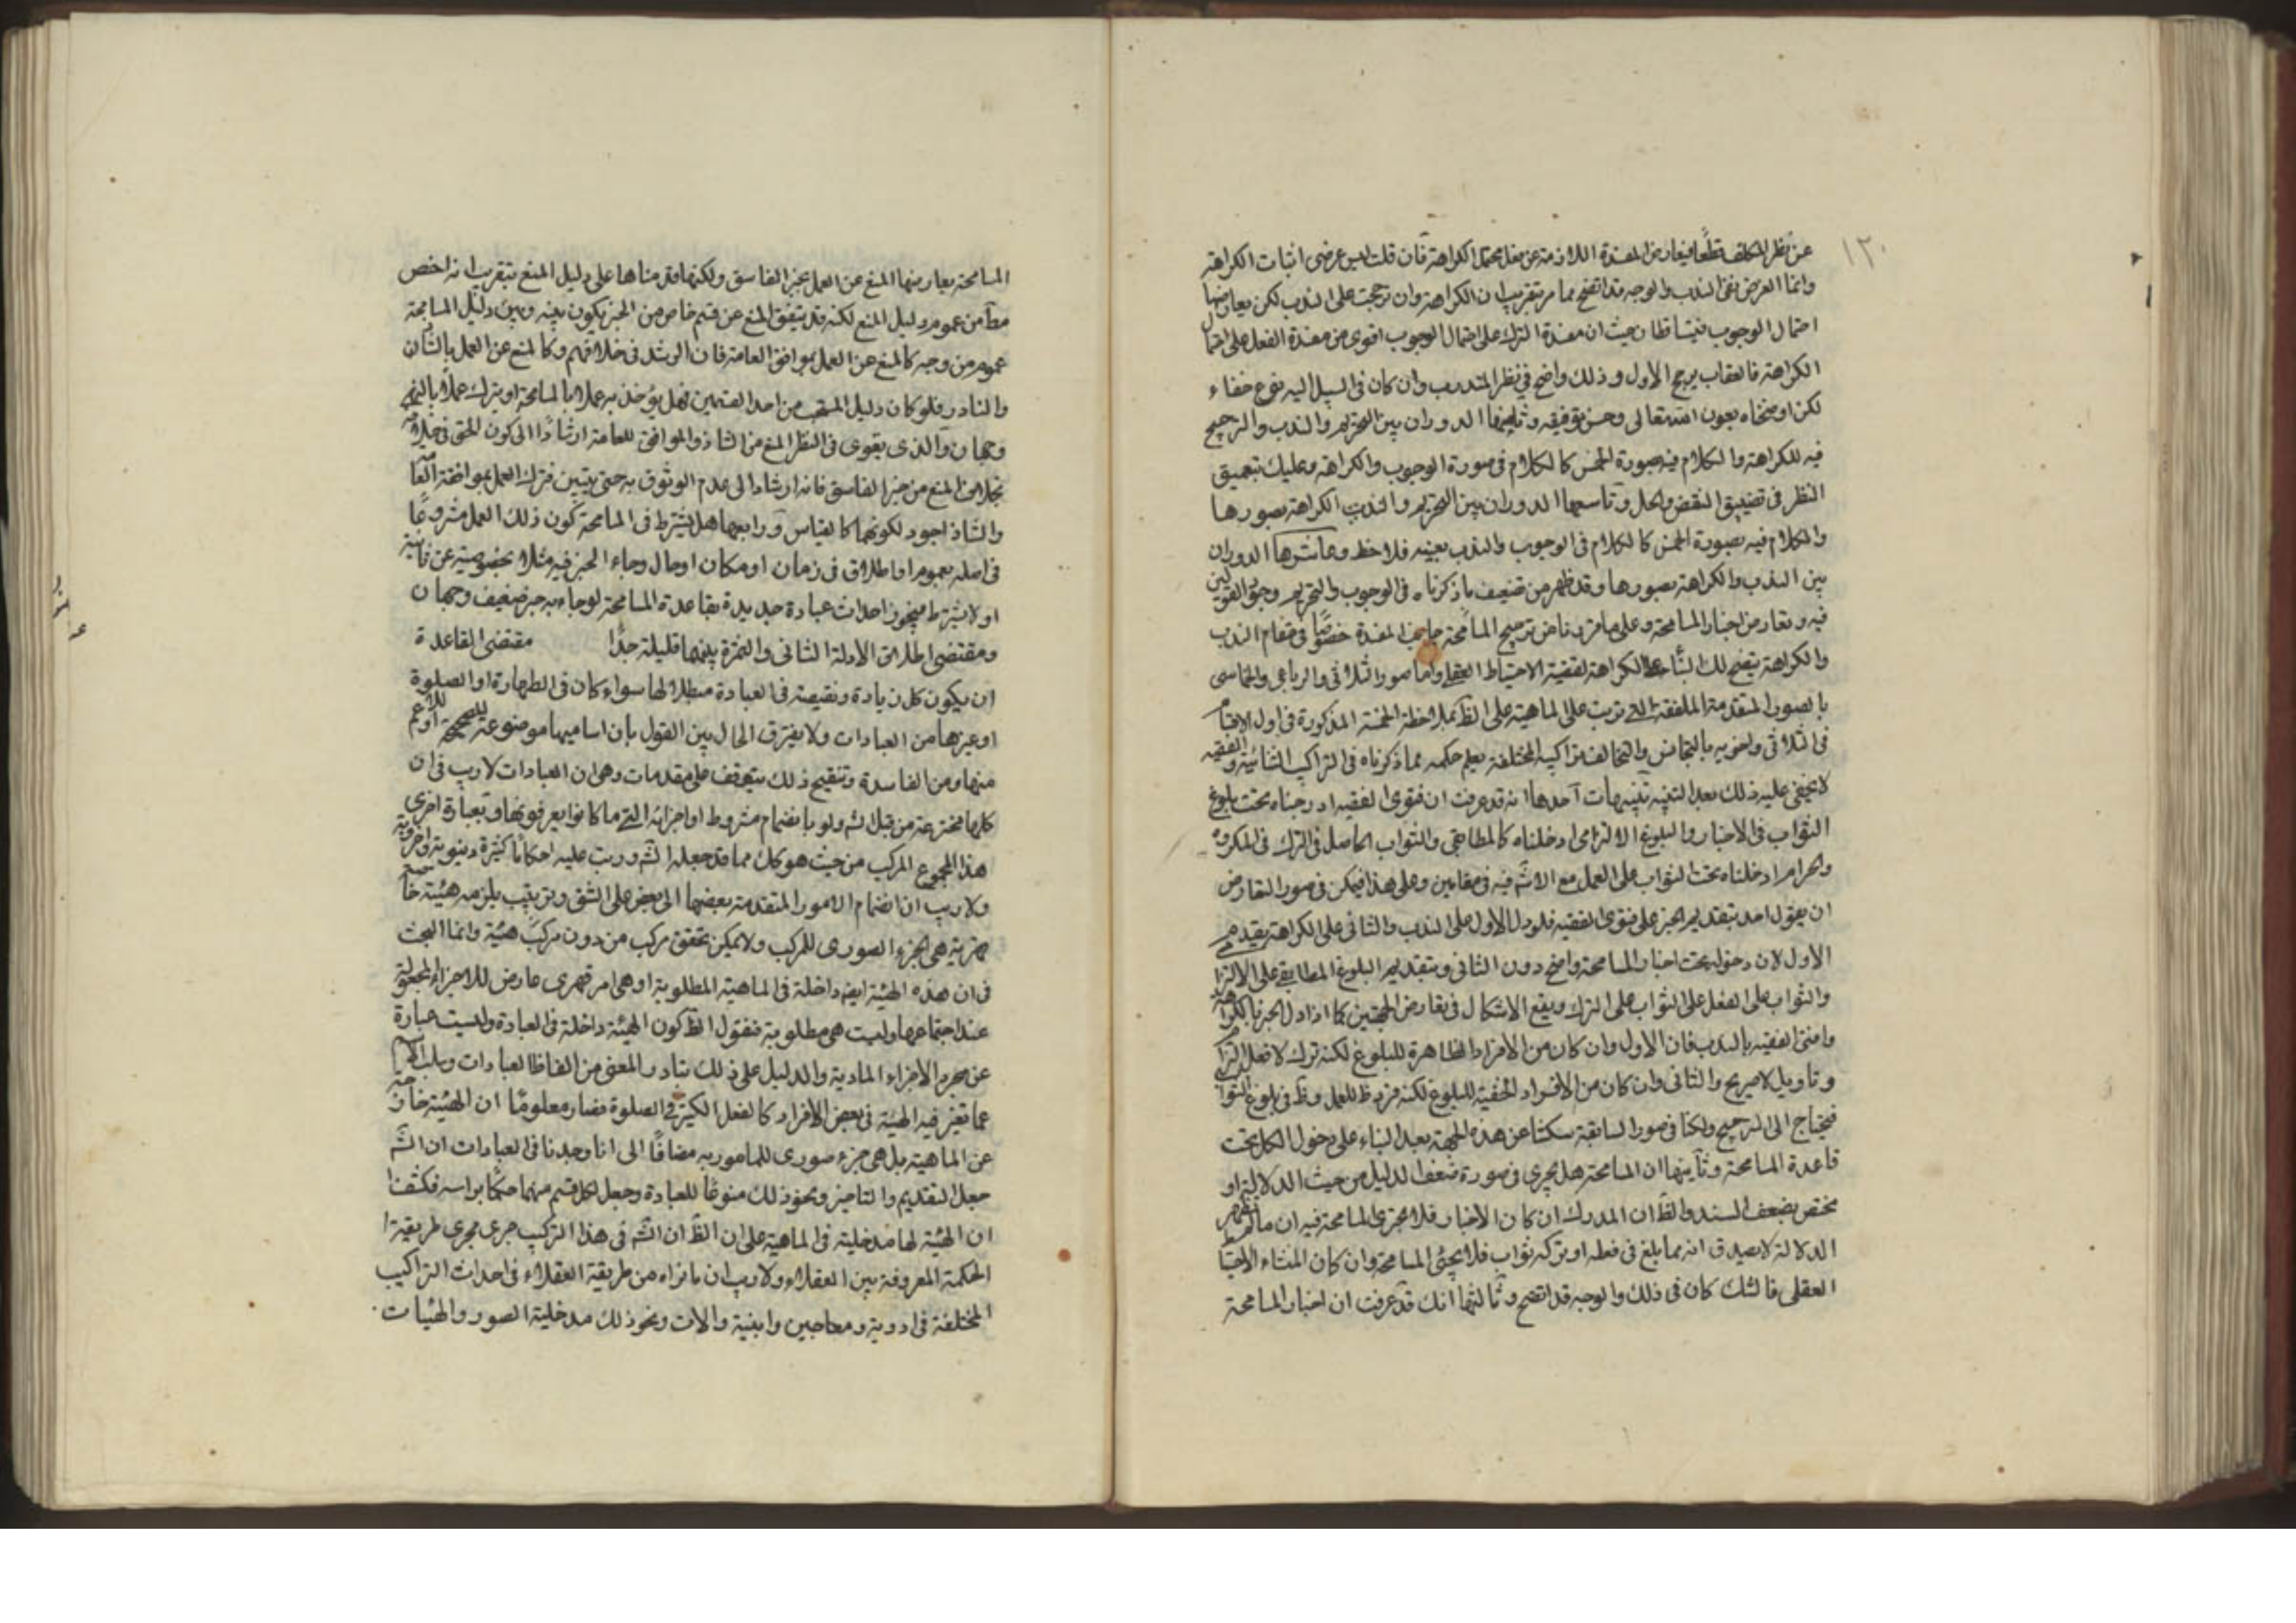 ١٢٠
عن نظر المكلف قطعا فيعارض المفسدة اللازمة عن فعل محتمل الكراهة فان قلت ليس غرضى اثبات الكراهة
وانما الغرض نفى الندب والوجه قد اتضح مما مر بتقريب ان الكراهة وان ترجحت على الندب لكن يعارضها
احتمال الوجوب فيتساقطان حيث ان مفسدة الترك على احتمال الوجوب اقوى من مفسدة الفعل على احتمال
الكراهة فالعقاب يرجح الاول وذلك واضح فى نظر المتدرب وان كان فى السبيل اليه نوع خفاء
لكن اوضحناه بعون الله تعالى وحسن توفيقه وثامنها الدوران بين التحريم والندب والترجيح
فيه للكراهة والكلام فيه بصورة الخمس كالكلام فى صورة الوجوب والكراهة وعليك بتعميق
النظر فى تضييق النقض والحل وتاسعها الدوران بين التحريم والندب الكراهة بصورها
والكلام فيه بصورة الخمس كالكلام فى الوجوب والندب بعينه فلاحظ وعاشرها الدوران
بين الندب والكراهة بصورها وقد ظهر من تضعيف ما ذكرناه فى الوجوب والتحريم وجوه القولين
فيه وتعارض اخبار المسامحة وعلى ما قررنا من ترجيح المسامحة جانب المفسدة خصوصا فى مقام الندب
والكراهة يتضح لك البناء على الكراهة لقضية الاحتياط العقلى واما صور الثلاثى والرباعى والخماسى
بالصور المتقدمة الملفقة التى تربت على الماهية على الظ بملاحظة الخمسة المذكورة فى اول الاقسام
فى الثلاثى ولضربه بالتجانس والتخالف تراكيب المختلفة يعلم حكمه مما ذكرناه فى التراكيب الثنائية والفقيه
لا يخفى عليه ذلك بعد التنبيه تنبيهات احدها انه قد عرفت ان فتوى الفقيه ادرجناه تحت بلوغ
الثواب فى الاخبار والبلوغ الالتزامى ادخلناه كالمطابقى والثواب الحاصل فى الترك فى المكروه
والحرام ادخلناه تحت الثواب على العمل مع الاثم فيه فى مقامين وعلى هذا فيمكن فى صور التعارض
ان يقول احد بتقديم الخبر على فتوى الفقيه فلو دل الاول على الندب والثانى على الكراهة يقدم
الاول لان دخوله تحت اخبار المسامحة واضح دون الثانى وبتقديم البلوغ المطابقى على الالتزامى
والثواب على الفعل على الثواب على الترك ويقع الاشكال فى تعارض الجهتين كما اذا دل الخبر بالكراهة
وافتى الفقيه بالندب فان الاول وان كان من الافراد الظاهرة للبلوغ لكنه ترك لا فعل التزاما
وتاويل لا صريح والثانى وان كان من الافراد الخفية للبلوغ لكنه فرد ظ للعمل وظ فى بلوغ الثواب
فيحتاج الى الترجيح ولكنا فى صور السابقة سكتنا عن هذه الجهة بعد البناء على دخول الكل تحت
قاعدة المسامحة وثانيها ان المسامحة هل يجرى فى صورة ضعف الدليل من حيث الدلالة او
يختص بضعف السند والظ ان المدرك ان كان الاخبار فلا يجرى المسامحة فيه ان ما لم يظهر
الدلالة لا يصدق انه مما بلغ فى فعله او تركه ثواب فلا يجئ المسامحة وان كان المنشاء الاحتياط
العقلى فالشك كان فى ذلك والوجه قد اتضح وثالثها انك قد عرفت ان اخبار المسامحة
المسامحة يعارضها المنع عن العمل بخبر الفاسق ولكنها قدمناها على دليل المنع بتقريب انه اخص
مطا من عموم دليل المنع لكنه قد يتفق المنع عن قسم خاص من الخبر يكون بينه وبين دليل المسامحة
عموم من وجه كالمنع عن العمل بموافق العامة فان الرشد فى خلافهم وكالمنع عن العمل بالشان
والنادر فلو كان دليل المستحب من احد القسمين فهل يؤخذ به عملا بالمسامحة او يترك عملا بالنهى
وجهان والذى يقوى فى النظر المنع من الشاذ والموافق للعامة ارشادا الى كون الحق فى خلافه
بخلاف المنع من خبر الفاسق فانه ارشاد الى عدم الوثوق به حتى يتبين فترك العمل بموافقة العامة
والشاذ اجود لكونهما كالقياس ورابعها هل يشترط فى المسامحة كون ذلك العمل مشروعا
فى اصله بعموم او اطلاق فى زمان او مكان او حال وجاء الخبر فيه مثلا بخصوصية عن ثانية
او لا يشترط فيجوز احداث عبادة جديدة بقاعدة المسامحة لو جاء به خبر ضعيف وجهان
ومقتضى اطلاق الادلة الثانى والثمرة بينهما قليلة جدا مقتضى القاعدة
ان يكون كل زيادة ونقيصة فى العبادة مبطلا لها سواء كان فى الطهارة او الصلوة
او غيرها من العبادات ولا يفترق الحال بين القول بان اساميها موضوعة للصحيحة او للاعم
منها ومن الفاسدة وتنقيح ذلك يتوقف على مقدمات وهى ان العبادات لا ريب فى ان
كلها مخترعة من قبل الش ولو بانضمام شروط او اجزائه التى ما كانوا يعرفونها وبعبارة اخرى
هذا المجموع المركب من حيث هو كك مما قد جعله الش ورتب عليه احكاما كثيرة دنيوية واخروية
ولا ريب ان انضمام الامور المتقدمة بعضها الى بعض على النسق وترتيب يلزمه هيئة خاصة
ضربة هى الجزء الصورى للمركب ولا يمكن تحقق مركب من دون مركب هيئة وانما البحث
فى ان هذه الهيئة ايض داخلة فى الماهية المطلوبة او هى امر قهرى عارض للاجزاء المجعولة
عند اجتماعها وليست هى مطلوبة فنقول الظ كون الهيئة داخلة فى العبادة وليست عبارة
عن مجرد الاجزاء المادية والدليل على ذلك تبادر المعنى من الفاظ العبادات وسلب الاسم
عما تغير فيه الهيئة فى بعض الافراد كالفعل الكثير فى الصلوة فصار معلوما ان الهيئة خارجة
عن الماهية بل هى جزء صورى للمامور به مضافا الى انا وجدنا فى العبادات ان الش
جعل التقديم والتاخير ونحو ذلك منوعا للعبادة وجعل لكل قسم منهما حكما براسه فكشفنا
ان الهيئة لها مدخلية فى الماهية على ان الظ ان الش فى هذا التركيب جرى مجرى طريقة
الحكمة المعروفة بين العقلاء ولا ريب ان ما نراه من طريقة العقلاء فى احداث التراكيب
المختلفة فى ادوية ومعاجين وابنية والات ونحو ذلك مدخلية الصور والهيئات